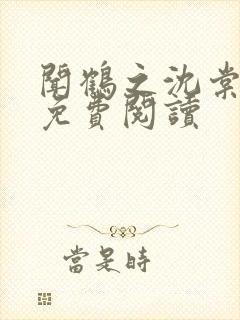 聞鶴之沈棠
免費閱讀
當是時